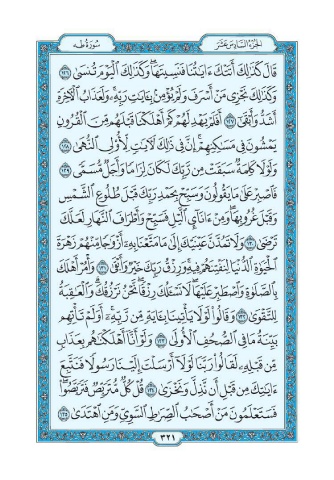 سُورَةُ طه
الجُزْءُ السَّادِسَ عَشَرَ
قَالَ كَذَٰلِكَ أَتَتْكَ ءَايَٰتُنَا فَنَسِيتَهَا ۖ وَكَذَٰلِكَ ٱلْيَوْمَ تُنسَىٰ ١٢٦
وَكَذَٰلِكَ نَجْزِى مَنْ أَسْرَفَ وَلَمْ يُؤْمِنۢ بِـَٔايَٰتِ رَبِّهِۦ ۚ وَلَعَذَابُ ٱلْءَاخِرَةِ
أَشَدُّ وَأَبْقَىٰٓ ١٢٧ أَفَلَمْ يَهْدِ لَهُمْ كَمْ أَهْلَكْنَا قَبْلَهُم مِّنَ ٱلْقُرُونِ
يَمْشُونَ فِى مَسَٰكِنِهِمْ ۗ إِنَّ فِى ذَٰلِكَ لَءَايَٰتٍ لِّأُو۟لِى ٱلنُّهَىٰ ١٢٨
وَلَوْلَا كَلِمَةٌ سَبَقَتْ مِن رَّبِّكَ لَكَانَ لِزَامًا وَأَجَلٌ مُّسَمًّى ١٢٩
فَٱصْبِرْ عَلَىٰ مَا يَقُولُونَ وَسَبِّحْ بِحَمْدِ رَبِّكَ قَبْلَ طُلُوعِ ٱلشَّمْسِ
وَقَبْلَ غُرُوبِهَا ۖ وَمِنْ ءَانَآئِ ٱلَّيْلِ فَسَبِّحْ وَأَطْرَافَ ٱلنَّهَارِ لَعَلَّكَ
تَرْضَىٰ ١٣٠ وَلَا تَمُدَّنَّ عَيْنَيْكَ إِلَىٰ مَا مَتَّعْنَا بِهِۦٓ أَزْوَٰجًا مِّنْهُمْ زَهْرَةَ
ٱلْحَيَوٰةِ ٱلدُّنْيَا لِنَفْتِنَهُمْ فِيهِ ۚ وَرِزْقُ رَبِّكَ خَيْرٌ وَأَبْقَىٰ ١٣١ وَأْمُرْ أَهْلَكَ
بِٱلصَّلَوٰةِ وَٱصْطَبِرْ عَلَيْهَا ۖ لَا نَسْـَٔلُكَ رِزْقًا ۖ نَّحْنُ نَرْزُقُكَ ۗ وَٱلْعَٰقِبَةُ
لِلتَّقْوَىٰ ١٣٢ وَقَالُوا۟ لَوْلَا يَأْتِينَا بِـَٔايَةٍ مِّن رَّبِّهِۦٓ ۚ أَوَلَمْ تَأْتِهِم
بَيِّنَةُ مَا فِى ٱلصُّحُفِ ٱلْأُولَىٰ ١٣٣ وَلَوْ أَنَّآ أَهْلَكْنَٰهُم بِعَذَابٍ
مِّن قَبْلِهِۦ لَقَالُوا۟ رَبَّنَا لَوْلَآ أَرْسَلْتَ إِلَيْنَا رَسُولًا فَنَتَّبِعَ
ءَايَٰتِكَ مِن قَبْلِ أَن نَّذِلَّ وَنَخْزَىٰ ١٣٤ قُلْ كُلٌّ مُّتَرَبِّصٌ فَتَرَبَّصُوا۟ ۖ
فَسَتَعْلَمُونَ مَنْ أَصْحَٰبُ ٱلصِّرَٰطِ ٱلسَّوِىِّ وَمَنِ ٱهْتَدَىٰ ١٣٥
٣٢١